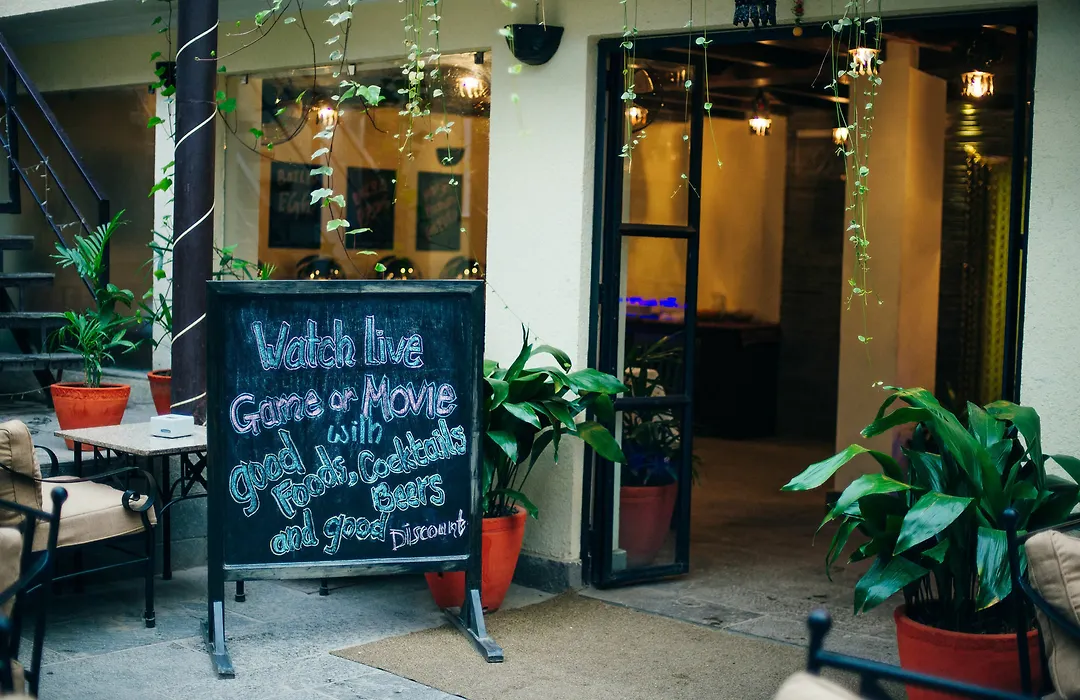 Watch live
Game or Movie
with
good Foods, Cocktails
Beers
and good Discount